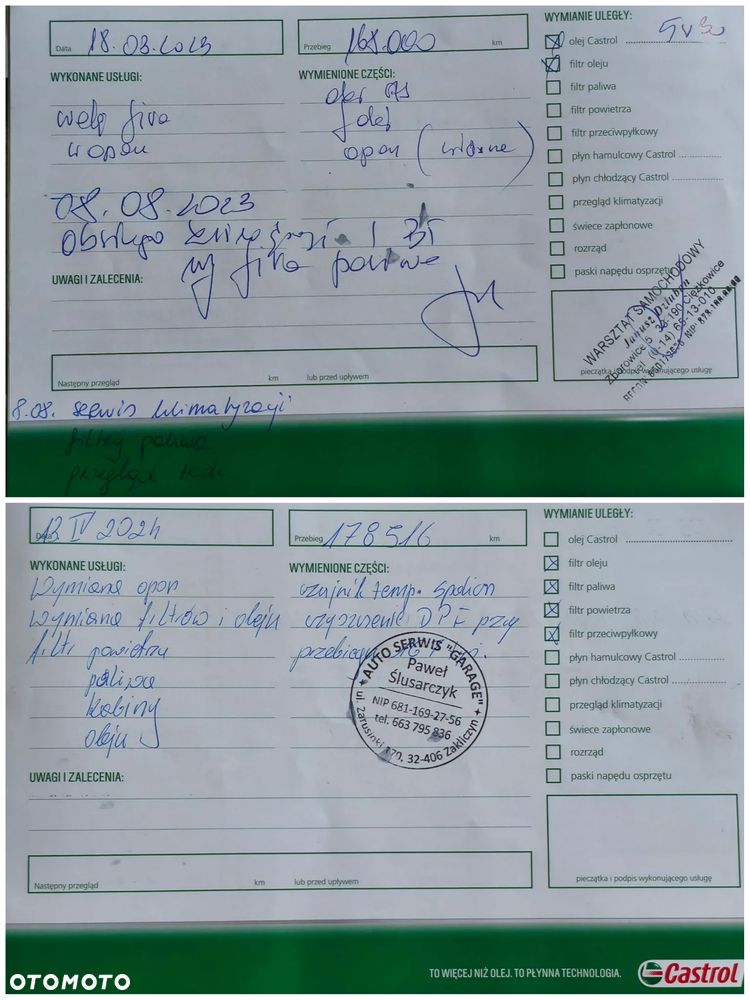 Data 18.03.2023
Przebieg 168.000 km
WYKONANE USŁUGI:
WYMIENIONE CZĘŚCI:
olej
opon
08.08.2023
UWAGI I ZALECENIA:
Następny przegląd km lub przed upływem
8.08. serwis klimatyzacji
filtry paliwa
przegląd tech.
WYMIANIE ULEGŁY:
olej Castrol 5W30
filtr oleju
filtr paliwa
filtr powietrza
filtr przeciwpyłkowy
płyn hamulcowy Castrol
płyn chłodzący Castrol
przegląd klimatyzacji
świece zapłonowe
rozrząd
paski napędu osprzętu
WARSZTAT SAMOCHODOWY
Janusz Dziuban
Zborowice 5, 33-190 Ciężkowice
pieczątka i podpis wykonującego usługę
Data 13 IV 2024
Przebieg 178516 km
WYKONANE USŁUGI:
Wymiana opon
Wymiana filtrów i oleju
filtr powietrza
paliwa
kabiny
oleju
WYMIENIONE CZĘŚCI:
czujnik temp. spalin
czyszczenie DPF przy
AUTO SERWIS "GARAGE"
Paweł
Ślusarczyk
NIP 681-169-27-56
tel. 663 795 836
32-406 Zakliczyn
UWAGI I ZALECENIA:
Następny przegląd km lub przed upływem
WYMIANIE ULEGŁY:
olej Castrol
filtr oleju
filtr paliwa
filtr powietrza
filtr przeciwpyłkowy
płyn hamulcowy Castrol
płyn chłodzący Castrol
przegląd klimatyzacji
świece zapłonowe
rozrząd
paski napędu osprzętu
pieczątka i podpis wykonującego usługę
TO WIĘCEJ NIŻ OLEJ. TO PŁYNNA TECHNOLOGIA.
Castrol
OTOMOTO